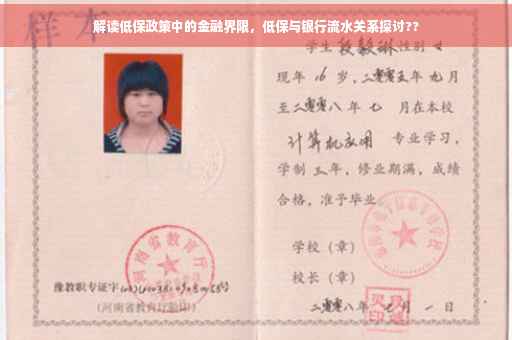 解读低保政策中的金融界限，低保与银行流水关系探讨??
样本
学生段毅琳性别女
现年16岁，二零零五年九月
至二零零八年七月在本校
计算机应用 专业学习，
学制三年，修业期满，成绩
合格，准予毕业。
学校（章）
校长（章）
二零零八年 月一日
河南省教育厅
豫教职专证字
（河南省教育厅验印）